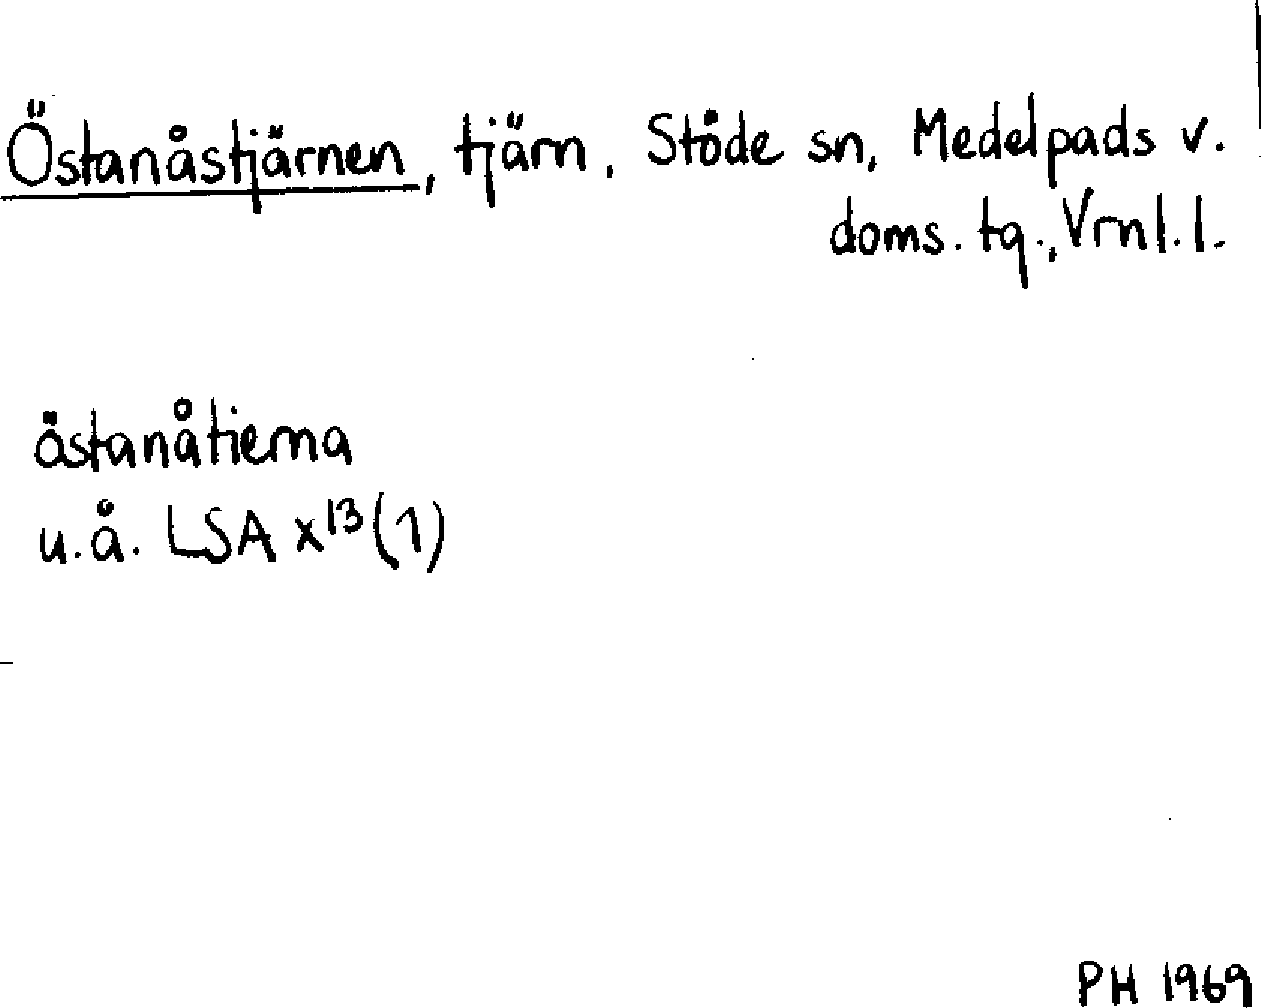 Östanåstjärnen, tjärn, Stöde sn, Medelpads v.
doms. tg., Vrnl. l.
östanåtierna
u.å. LSA x13(1)
PH 1969